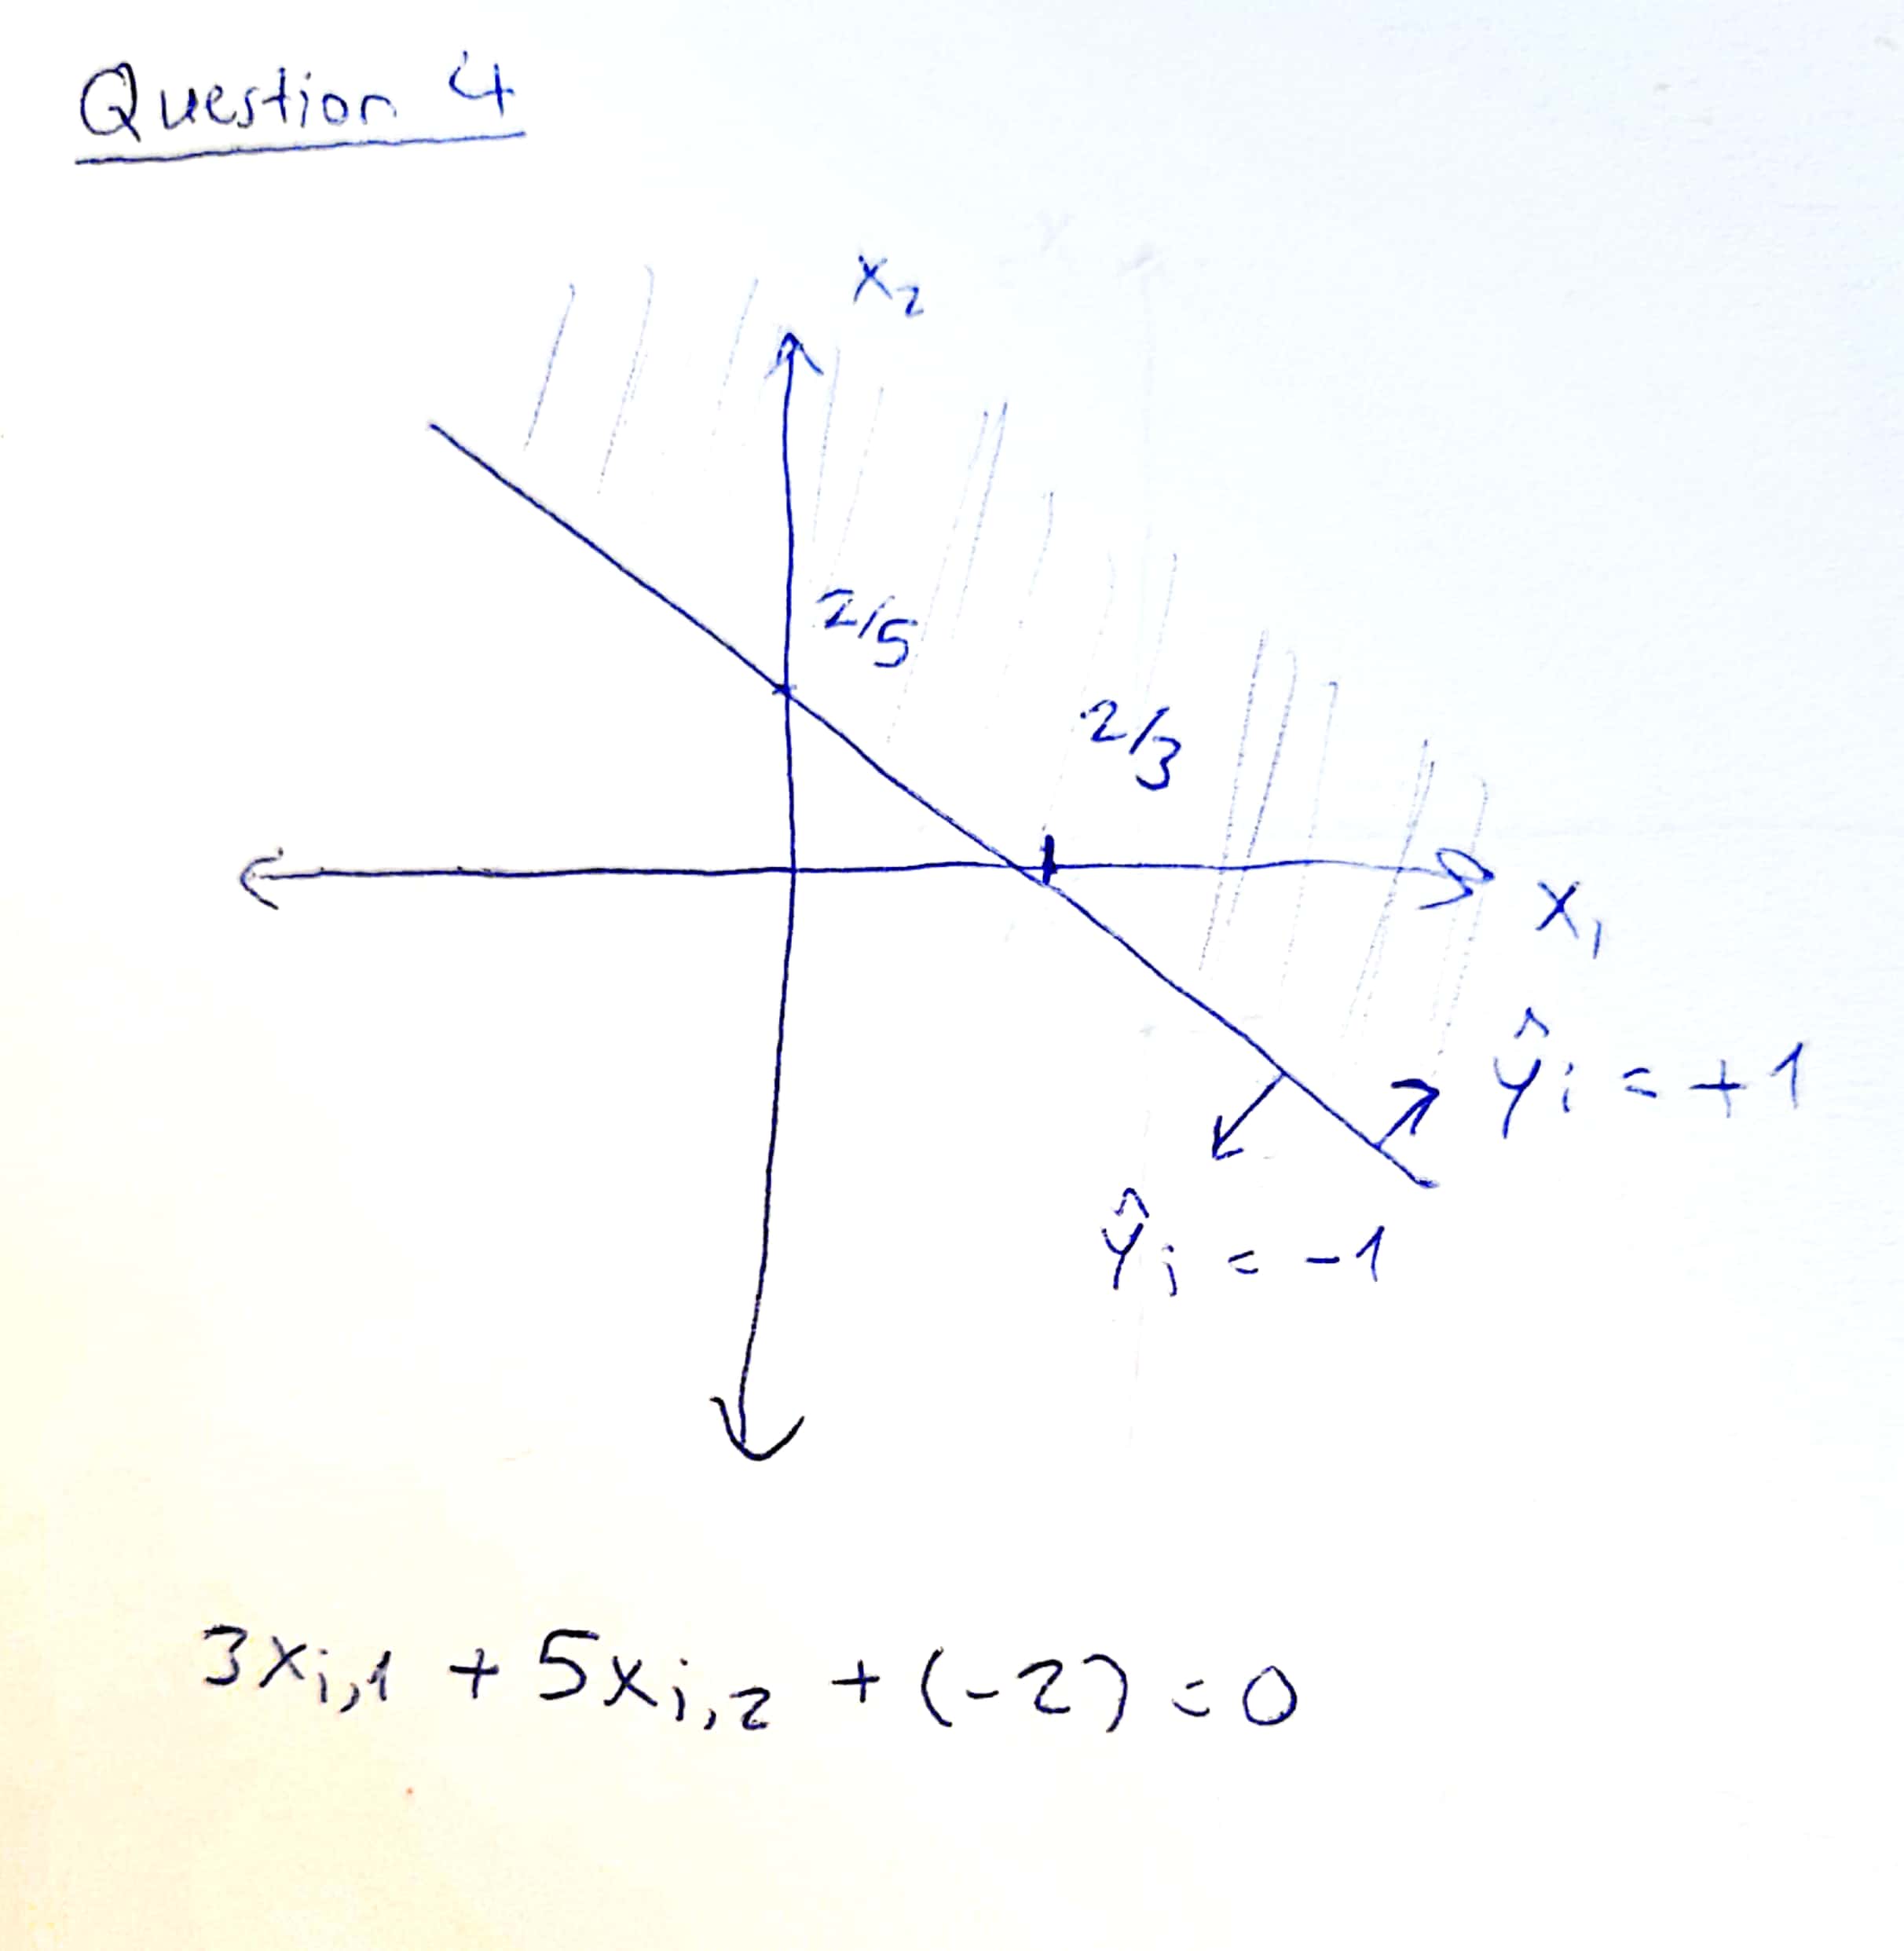 Question 4
x₂
2/5
2/3
x₁
ŷᵢ = +1
ŷᵢ = -1
3xᵢ,₁ + 5xᵢ,₂ + (-2) = 0